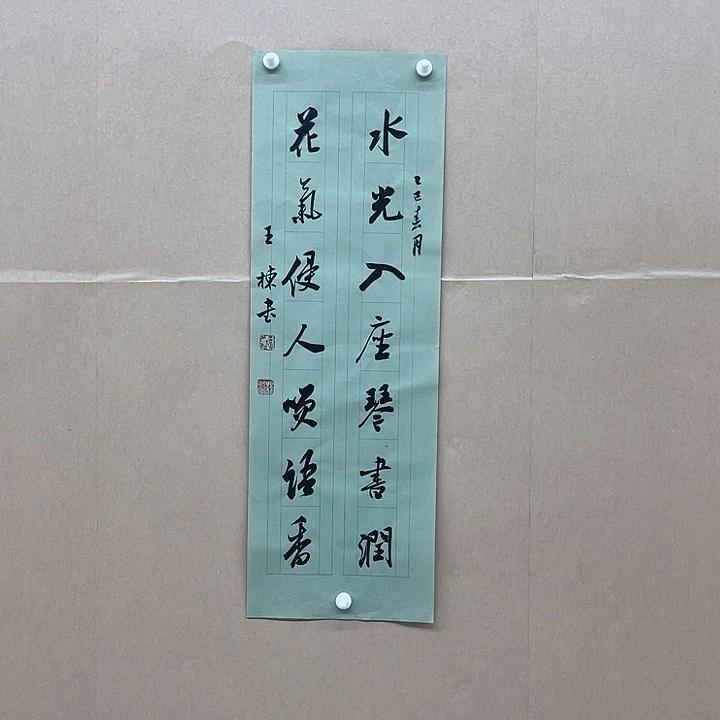 乙巳春月
水光入座琴書潤
花氣侵人咲語香
王棟书